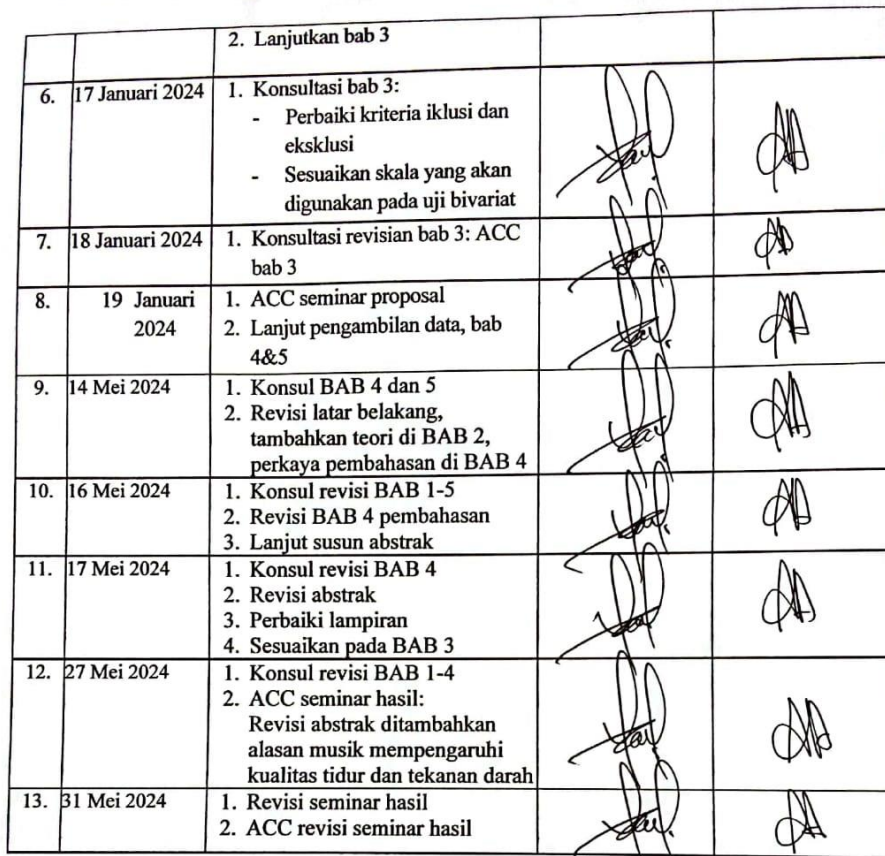 2. Lanjutkan bab 3
6. 17 Januari 2024 1. Konsultasi bab 3:
- Perbaiki kriteria iklusi dan
eksklusi
- Sesuaikan skala yang akan
digunakan pada uji bivariat
7. 18 Januari 2024 1. Konsultasi revisian bab 3: ACC
bab 3
8. 19 Januari 1. ACC seminar proposal
2024 2. Lanjut pengambilan data, bab
4&5
9. 14 Mei 2024 1. Konsul BAB 4 dan 5
2. Revisi latar belakang,
tambahkan teori di BAB 2,
perkaya pembahasan di BAB 4
10. 16 Mei 2024 1. Konsul revisi BAB 1-5
2. Revisi BAB 4 pembahasan
3. Lanjut susun abstrak
11. 17 Mei 2024 1. Konsul revisi BAB 4
2. Revisi abstrak
3. Perbaiki lampiran
4. Sesuaikan pada BAB 3
12. 27 Mei 2024 1. Konsul revisi BAB 1-4
2. ACC seminar hasil:
Revisi abstrak ditambahkan
alasan musik mempengaruhi
kualitas tidur dan tekanan darah
13. 31 Mei 2024 1. Revisi seminar hasil
2. ACC revisi seminar hasil